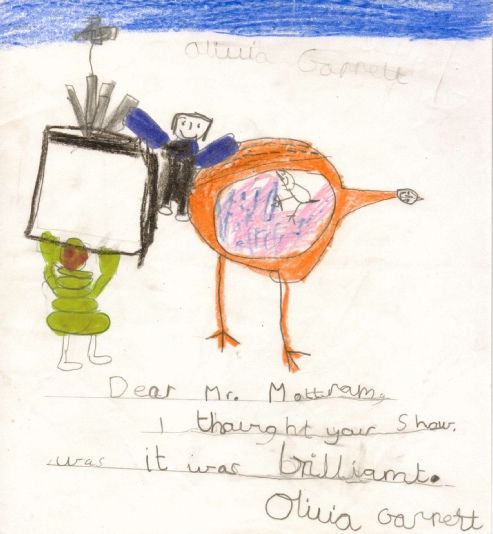 Olivia Garnett
Dear Mr. Mottram,
I thought your Show.
was it was brilliant.
Olivia Garnett